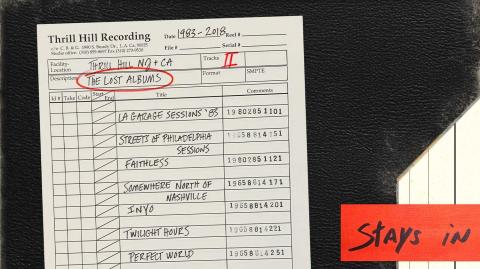 Thrill Hill Recording
Date 1983-2018 Reel #
File # Serial #
Facility-Location THRILL HILL NJ + CA
Tracks II
Description THE LOST ALBUMS
Format SMPTE
Id # Take Code Start End Title Comments
LA GARAGE SESSIONS '83 19802851101
STREETS OF PHILADELPHIA
SESSIONS 19658814151
FAITHLESS 19802851121
SOMEWHERE NORTH OF
NASHVILLE 19658814171
INYO 19658814201
TWILIGHT HOURS 19658814221
PERFECT WORLD 19658814251
STAYS IN